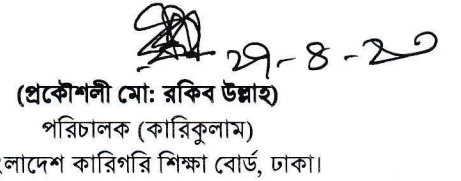 ২৭-৪-২০
(প্রকৌশলী মো: রকিব উল্লাহ)
পরিচালক (কারিকুলাম)
লাদেশ কারিগরি শিক্ষা বোর্ড, ঢাকা।